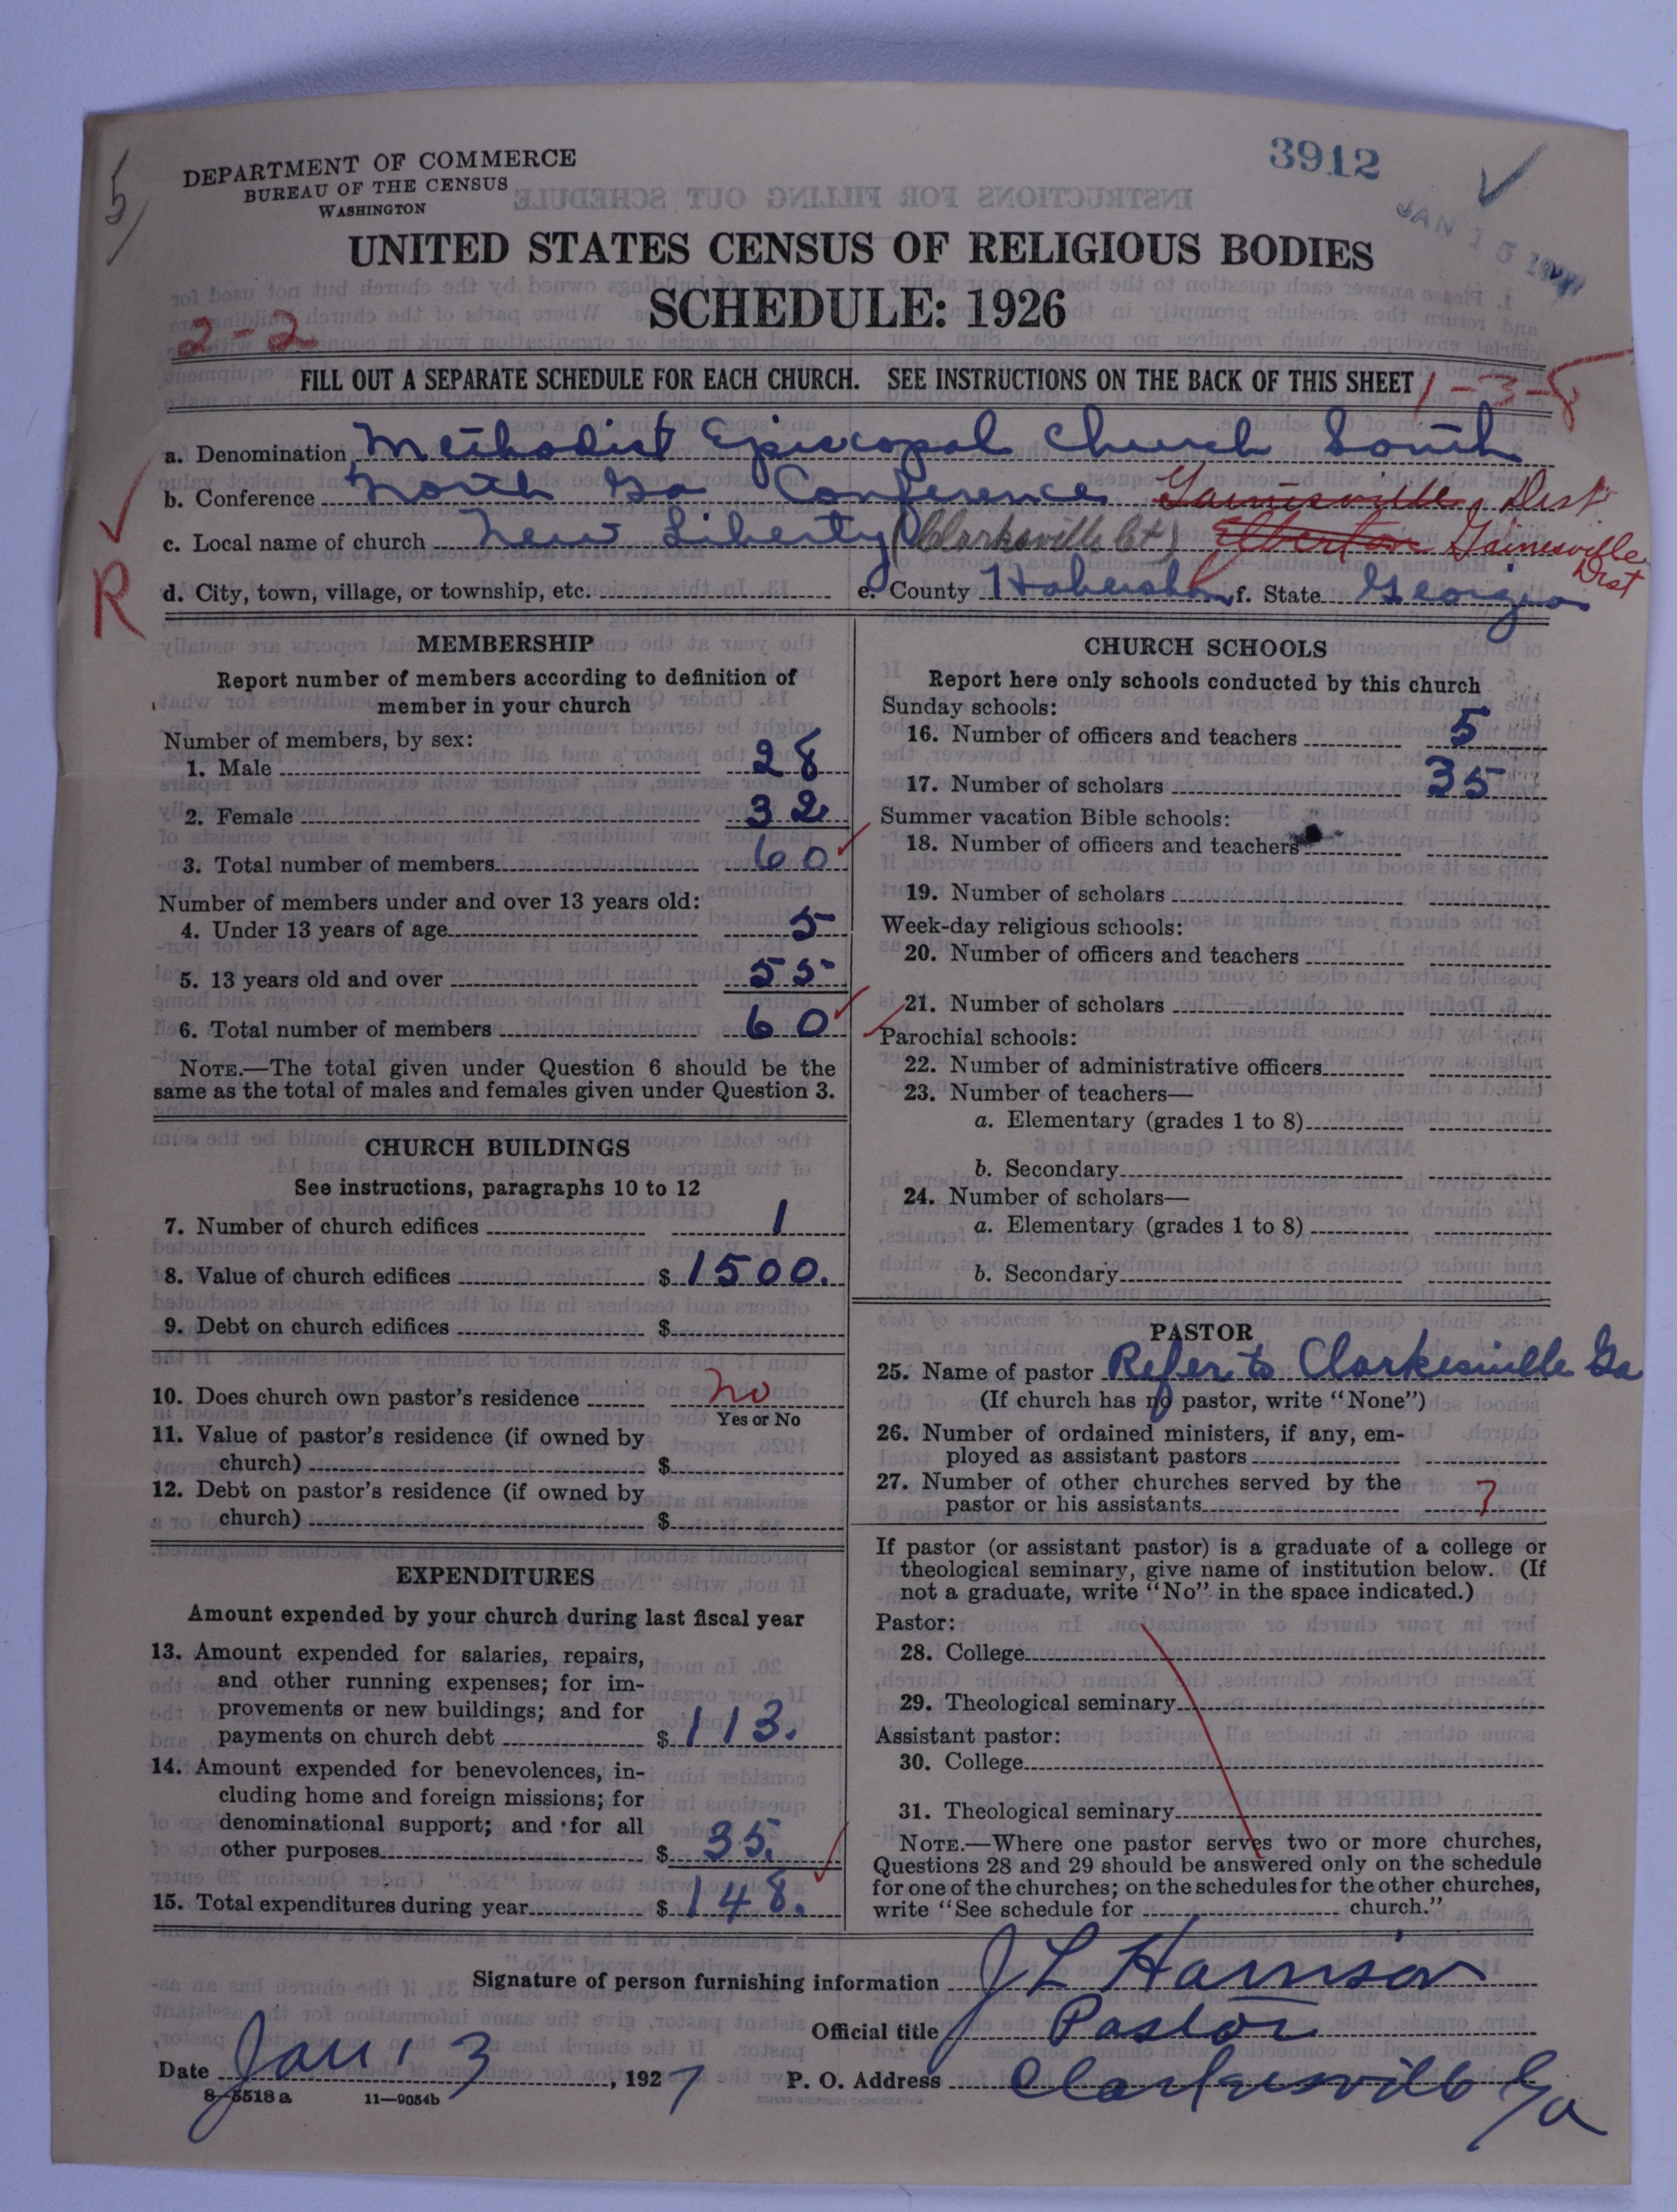 5/
DEPARTMENT OF COMMERCE
BUREAU OF THE CENSUS
WASHINGTON
3912
JAN 15 1927
UNITED STATES CENSUS OF RELIGIOUS BODIES
SCHEDULE: 1926
2-2
FILL OUT A SEPARATE SCHEDULE FOR EACH CHURCH. SEE INSTRUCTIONS ON THE BACK OF THIS SHEET
1-3-8
a. Denomination Methodist Episcopal Church South
b. Conference North Ga Conference Gainesville Dist
c. Local name of church New Liberty (Clarksville Ct) Elberton Gainesville Dist
R
d. City, town, village, or township, etc. e. County Habersham f. State Georgia
MEMBERSHIP
Report number of members according to definition of
member in your church
Number of members, by sex:
1. Male 28
2. Female 32
3. Total number of members 60
Number of members under and over 13 years old:
4. Under 13 years of age 5
5. 13 years old and over 55
6. Total number of members 60
NOTE.—The total given under Question 6 should be the
same as the total of males and females given under Question 3.
CHURCH BUILDINGS
See instructions, paragraphs 10 to 12
7. Number of church edifices 1
8. Value of church edifices $ 1500.
9. Debt on church edifices $
10. Does church own pastor's residence no
Yes or No
11. Value of pastor's residence (if owned by
church) $
12. Debt on pastor's residence (if owned by
church) $
EXPENDITURES
Amount expended by your church during last fiscal year
13. Amount expended for salaries, repairs,
and other running expenses; for im-
provements or new buildings; and for
payments on church debt $ 113.
14. Amount expended for benevolences, in-
cluding home and foreign missions; for
denominational support; and for all
other purposes $ 35.
15. Total expenditures during year $ 148.
CHURCH SCHOOLS
Report here only schools conducted by this church
Sunday schools:
16. Number of officers and teachers 5
17. Number of scholars 35
Summer vacation Bible schools:
18. Number of officers and teachers
19. Number of scholars
Week-day religious schools:
20. Number of officers and teachers
21. Number of scholars
Parochial schools:
22. Number of administrative officers
23. Number of teachers—
a. Elementary (grades 1 to 8)
b. Secondary
24. Number of scholars—
a. Elementary (grades 1 to 8)
b. Secondary
PASTOR
25. Name of pastor Refer to Clarkesville Ga
(If church has no pastor, write "None")
26. Number of ordained ministers, if any, em-
ployed as assistant pastors
27. Number of other churches served by the
pastor or his assistants 7
If pastor (or assistant pastor) is a graduate of a college or
theological seminary, give name of institution below. (If
not a graduate, write "No" in the space indicated.)
Pastor:
28. College
29. Theological seminary
Assistant pastor:
30. College
31. Theological seminary
NOTE.—Where one pastor serves two or more churches,
Questions 28 and 29 should be answered only on the schedule
for one of the churches; on the schedules for the other churches,
write "See schedule for church."
Signature of person furnishing information J L Harrison
Official title Pastor
Date Jan. 3, 1927 P. O. Address Clarkesville Ga
8-5518 a 11—9054b